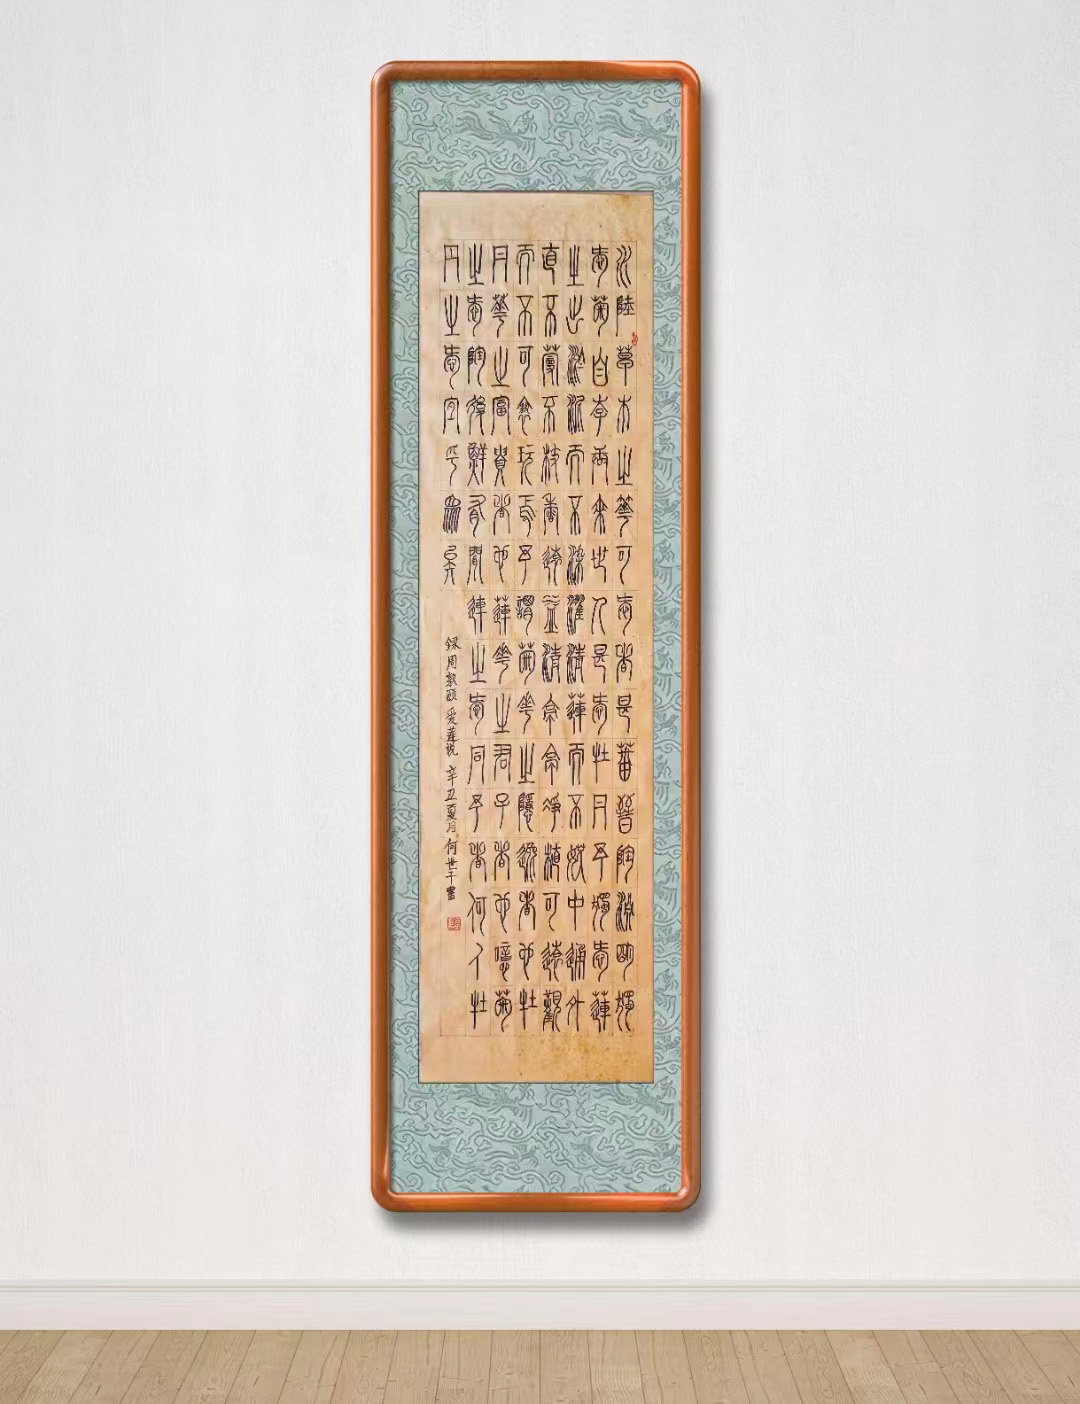 水陸草木之華可愛者甚蕃晉陶淵明獨
愛菊自李唐來世人甚愛牡丹予獨愛蓮
之出淤泥而不染濯清蓮而不妖中通外
直不蔓不枝香遠益清亭亭淨植可遠觀
而不可褻玩焉予謂菊花之隱逸者也牡
丹華之富貴者也蓮花之君子者也噫菊
之愛陶後鮮有聞蓮之愛同予者何人牡
丹之愛宜乎眾矣
録周敦頤爱蓮説 辛丑夏月何世千書